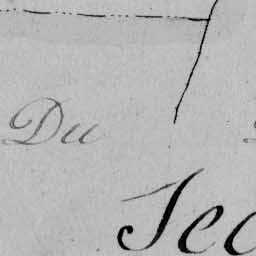 Du
Sec